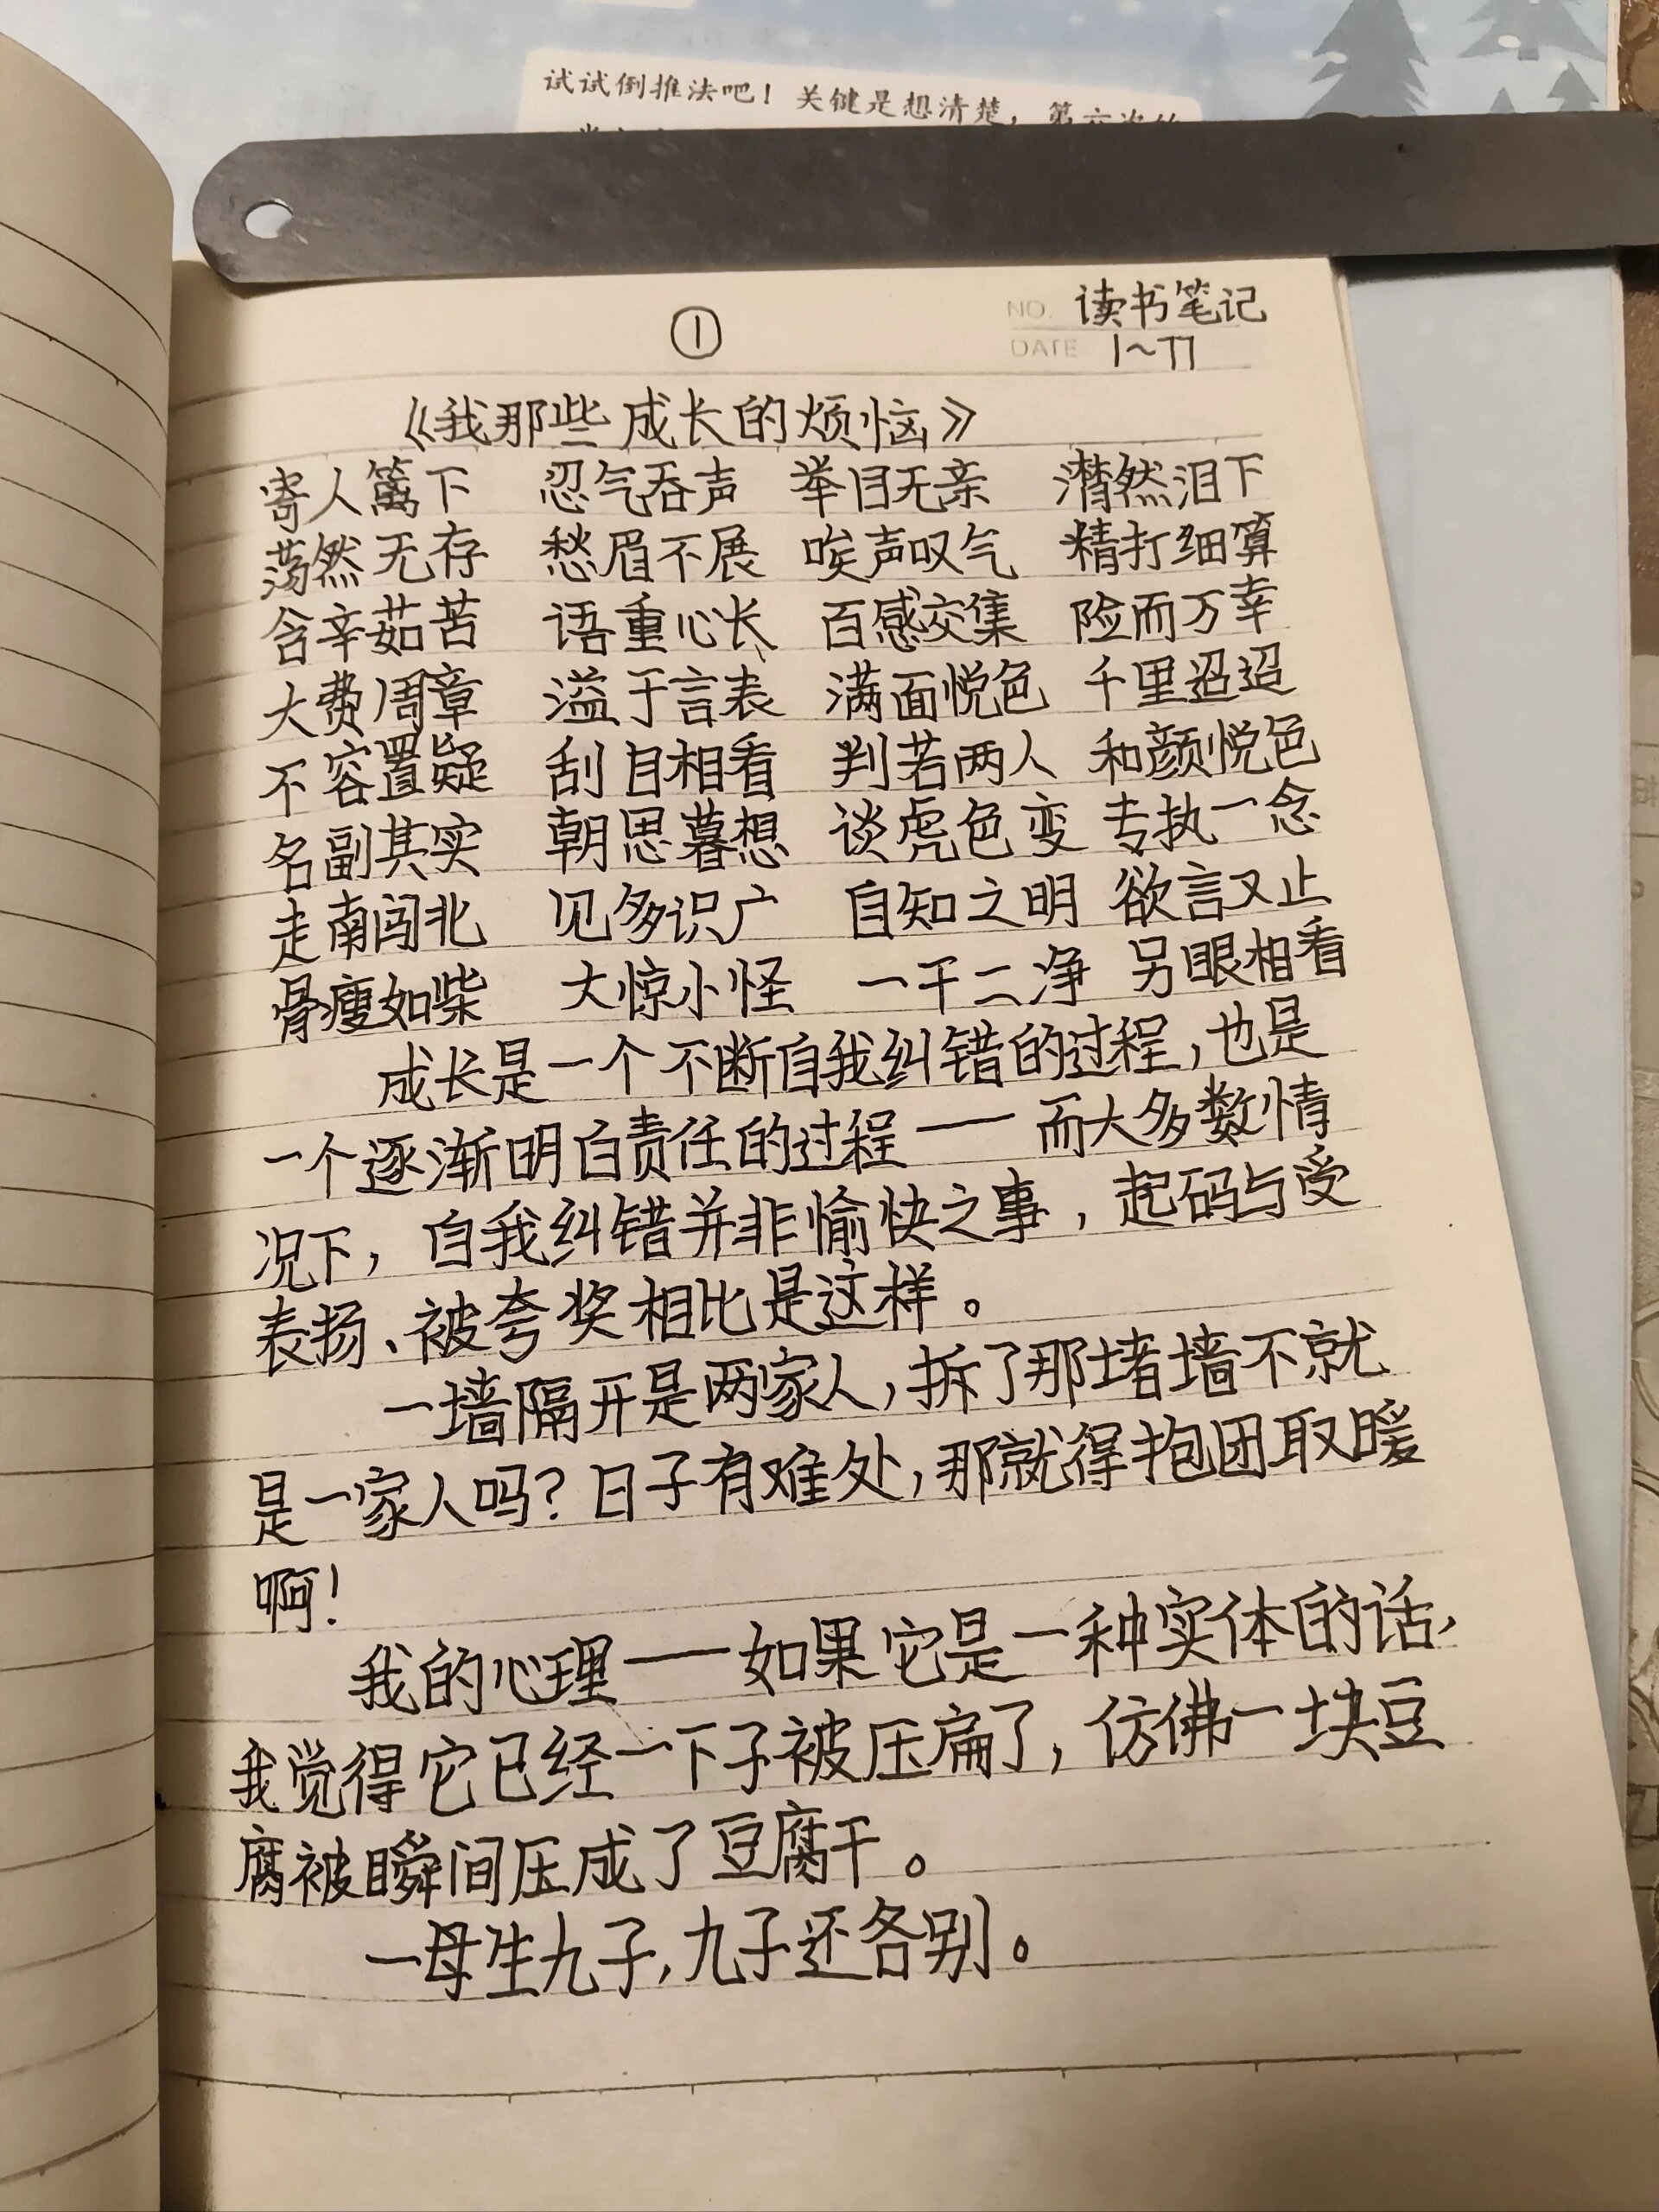 试试倒推法吧！关键是想清楚，第六次的
①
NO. 读书笔记
DATE 1~77
《我那些成长的烦恼》
寄人篱下 忍气吞声 举目无亲 潸然泪下
荡然无存 愁眉不展 唉声叹气 精打细算
含辛茹苦 语重心长 百感交集 险而万幸
大费周章 溢于言表 满面悦色 千里迢迢
不容置疑 刮目相看 判若两人 和颜悦色
名副其实 朝思暮想 谈虎色变 专执一念
走南闯北 见多识广 自知之明 欲言又止
骨瘦如柴 大惊小怪 一干二净 另眼相看
成长是一个不断自我纠错的过程,也是
一个逐渐明白责任的过程——而大多数情
况下，自我纠错并非愉快之事，起码与受
表扬、被夸奖相比是这样。
一墙隔开是两家人,拆了那堵墙不就
是一家人吗?日子有难处,那就得抱团取暖
啊!
我的心理——如果它是一种实体的话,
我觉得它已经一下子被压扁了，仿佛一块豆
腐被瞬间压成了豆腐干。
一母生九子,九子还各别。